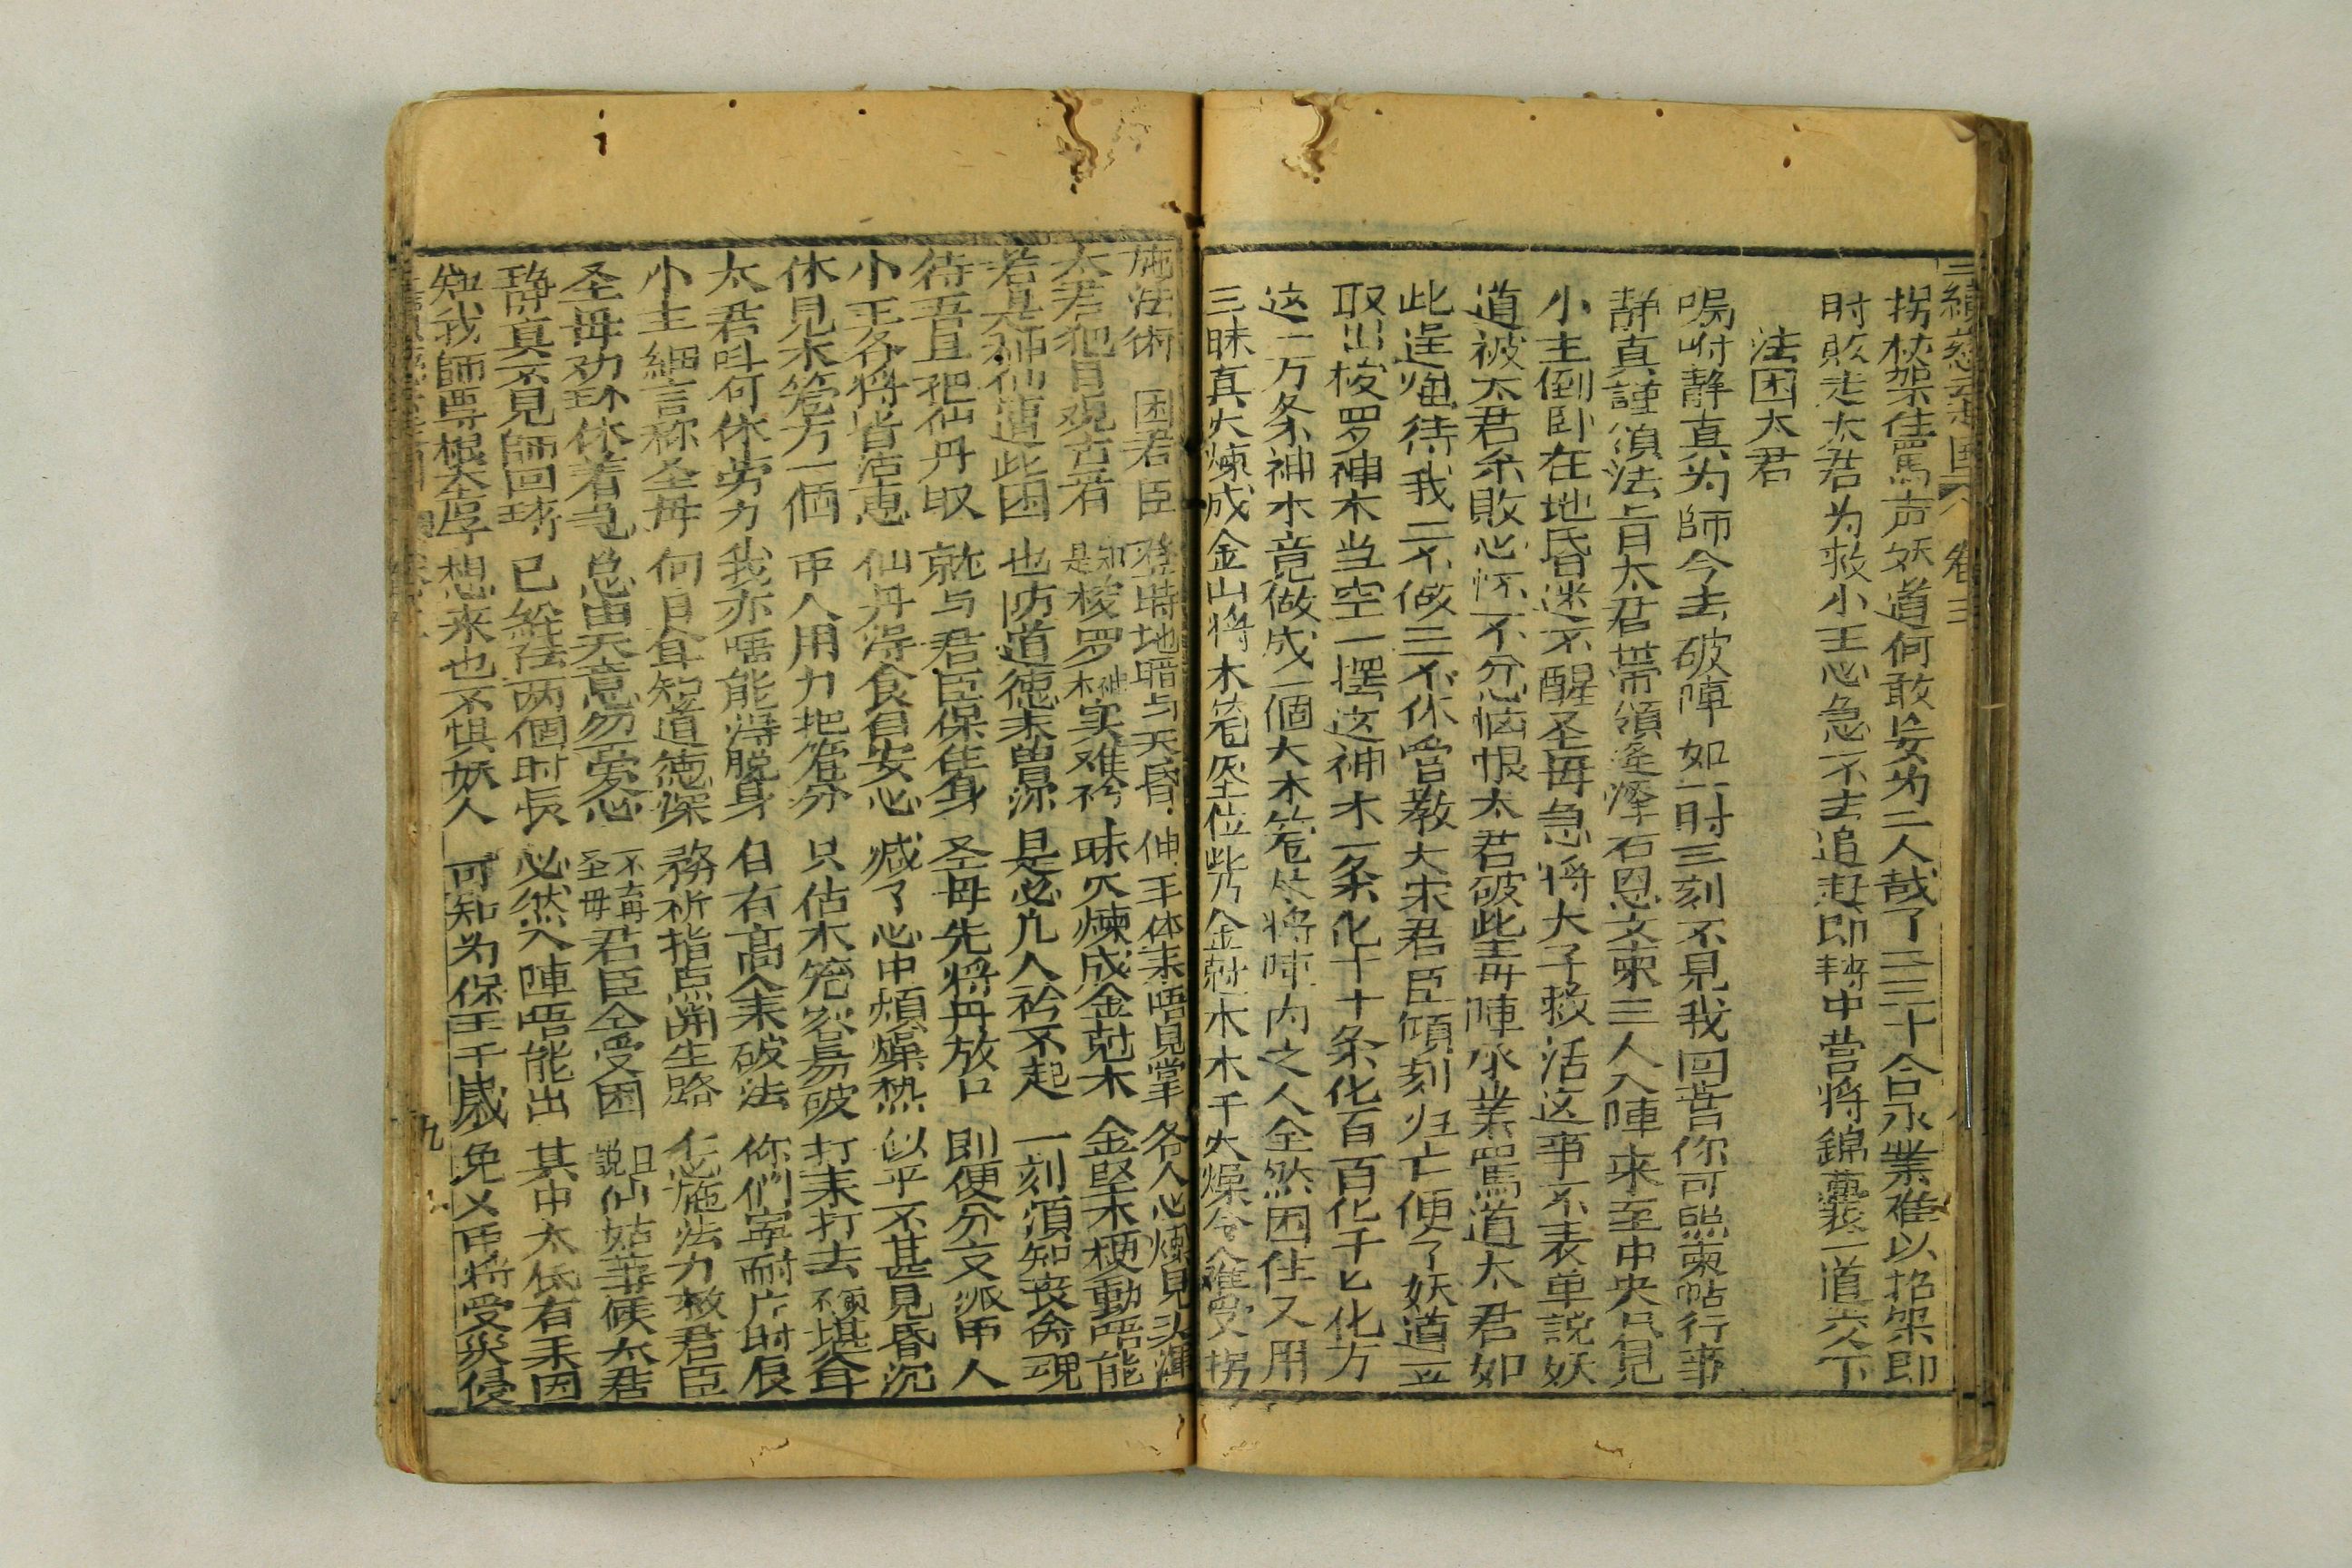 拐杖架住罵声妖道何敢妄为二人战了二三十合永業难以招架即
时敗走太君为救小王心急不去追赶即轉中营將錦囊一道交下
法困太君
嗚咐静真为師今去破陣如一时三刻不見我回营你可照柬帖行事
静真謹領法旨太君带領逢怿石恩文柬三人入陣来至中央只見
小主倒卧在地昏迷不醒圣母急将太子救活这事不表单説妖
道被太君杀敗心怀不分恼恨太君破此毒陣永業罵道太君如
此逞强待我二不做三不休管教大宋君臣傾刻归亡便了妖道立
取出梭罗神木当空一擺这神木一条化十十条化百百化千匕化万
这一万条神木竟做成一個大木笼将陣内之人全然困住又用
三昧真火煉成金山将木笼圣位此乃金尅木木干火燥令人难受拐
施法術　困君臣　登時地暗与天昏　伸手体来唔見掌　各人心煉見头渾
太君把目观言者　知是梭罗神木实难衿　昧火煉成金尅木　金堅木梗動唔能
若是神仙遭此困　也防道德未曾深　是必凡人衿不起　一刻須知丧命魂
待吾且把仙丹取　就与君臣保住身　圣母先将丹放口　即便分交派甲人
小王各将皆沾恵　仙丹得食自安心　减了心中煩燥热　似乎不甚見昏沉
休見木笼方一個　甲人用力把笼分　只估木笼容易破　打来打去不願堪耸
太君呌何休劳力　我亦唔能淂脱身　自有高人来破法　你們宰耐片时辰
小主細言称圣母　何日耸知道德深　務祈指点開生路　怎施法力救君臣
圣母劝孙休着急　总由天意勿憂心　不言圣母君臣仝受困　且説仙姑等候太君
静真不見師回轉　已經两個时長　必然入陣唔能出　其中太低有来因
知我師尊根本厚　想来也不惧妖人　可知为保王千歳　免乂甲将受災侵
九